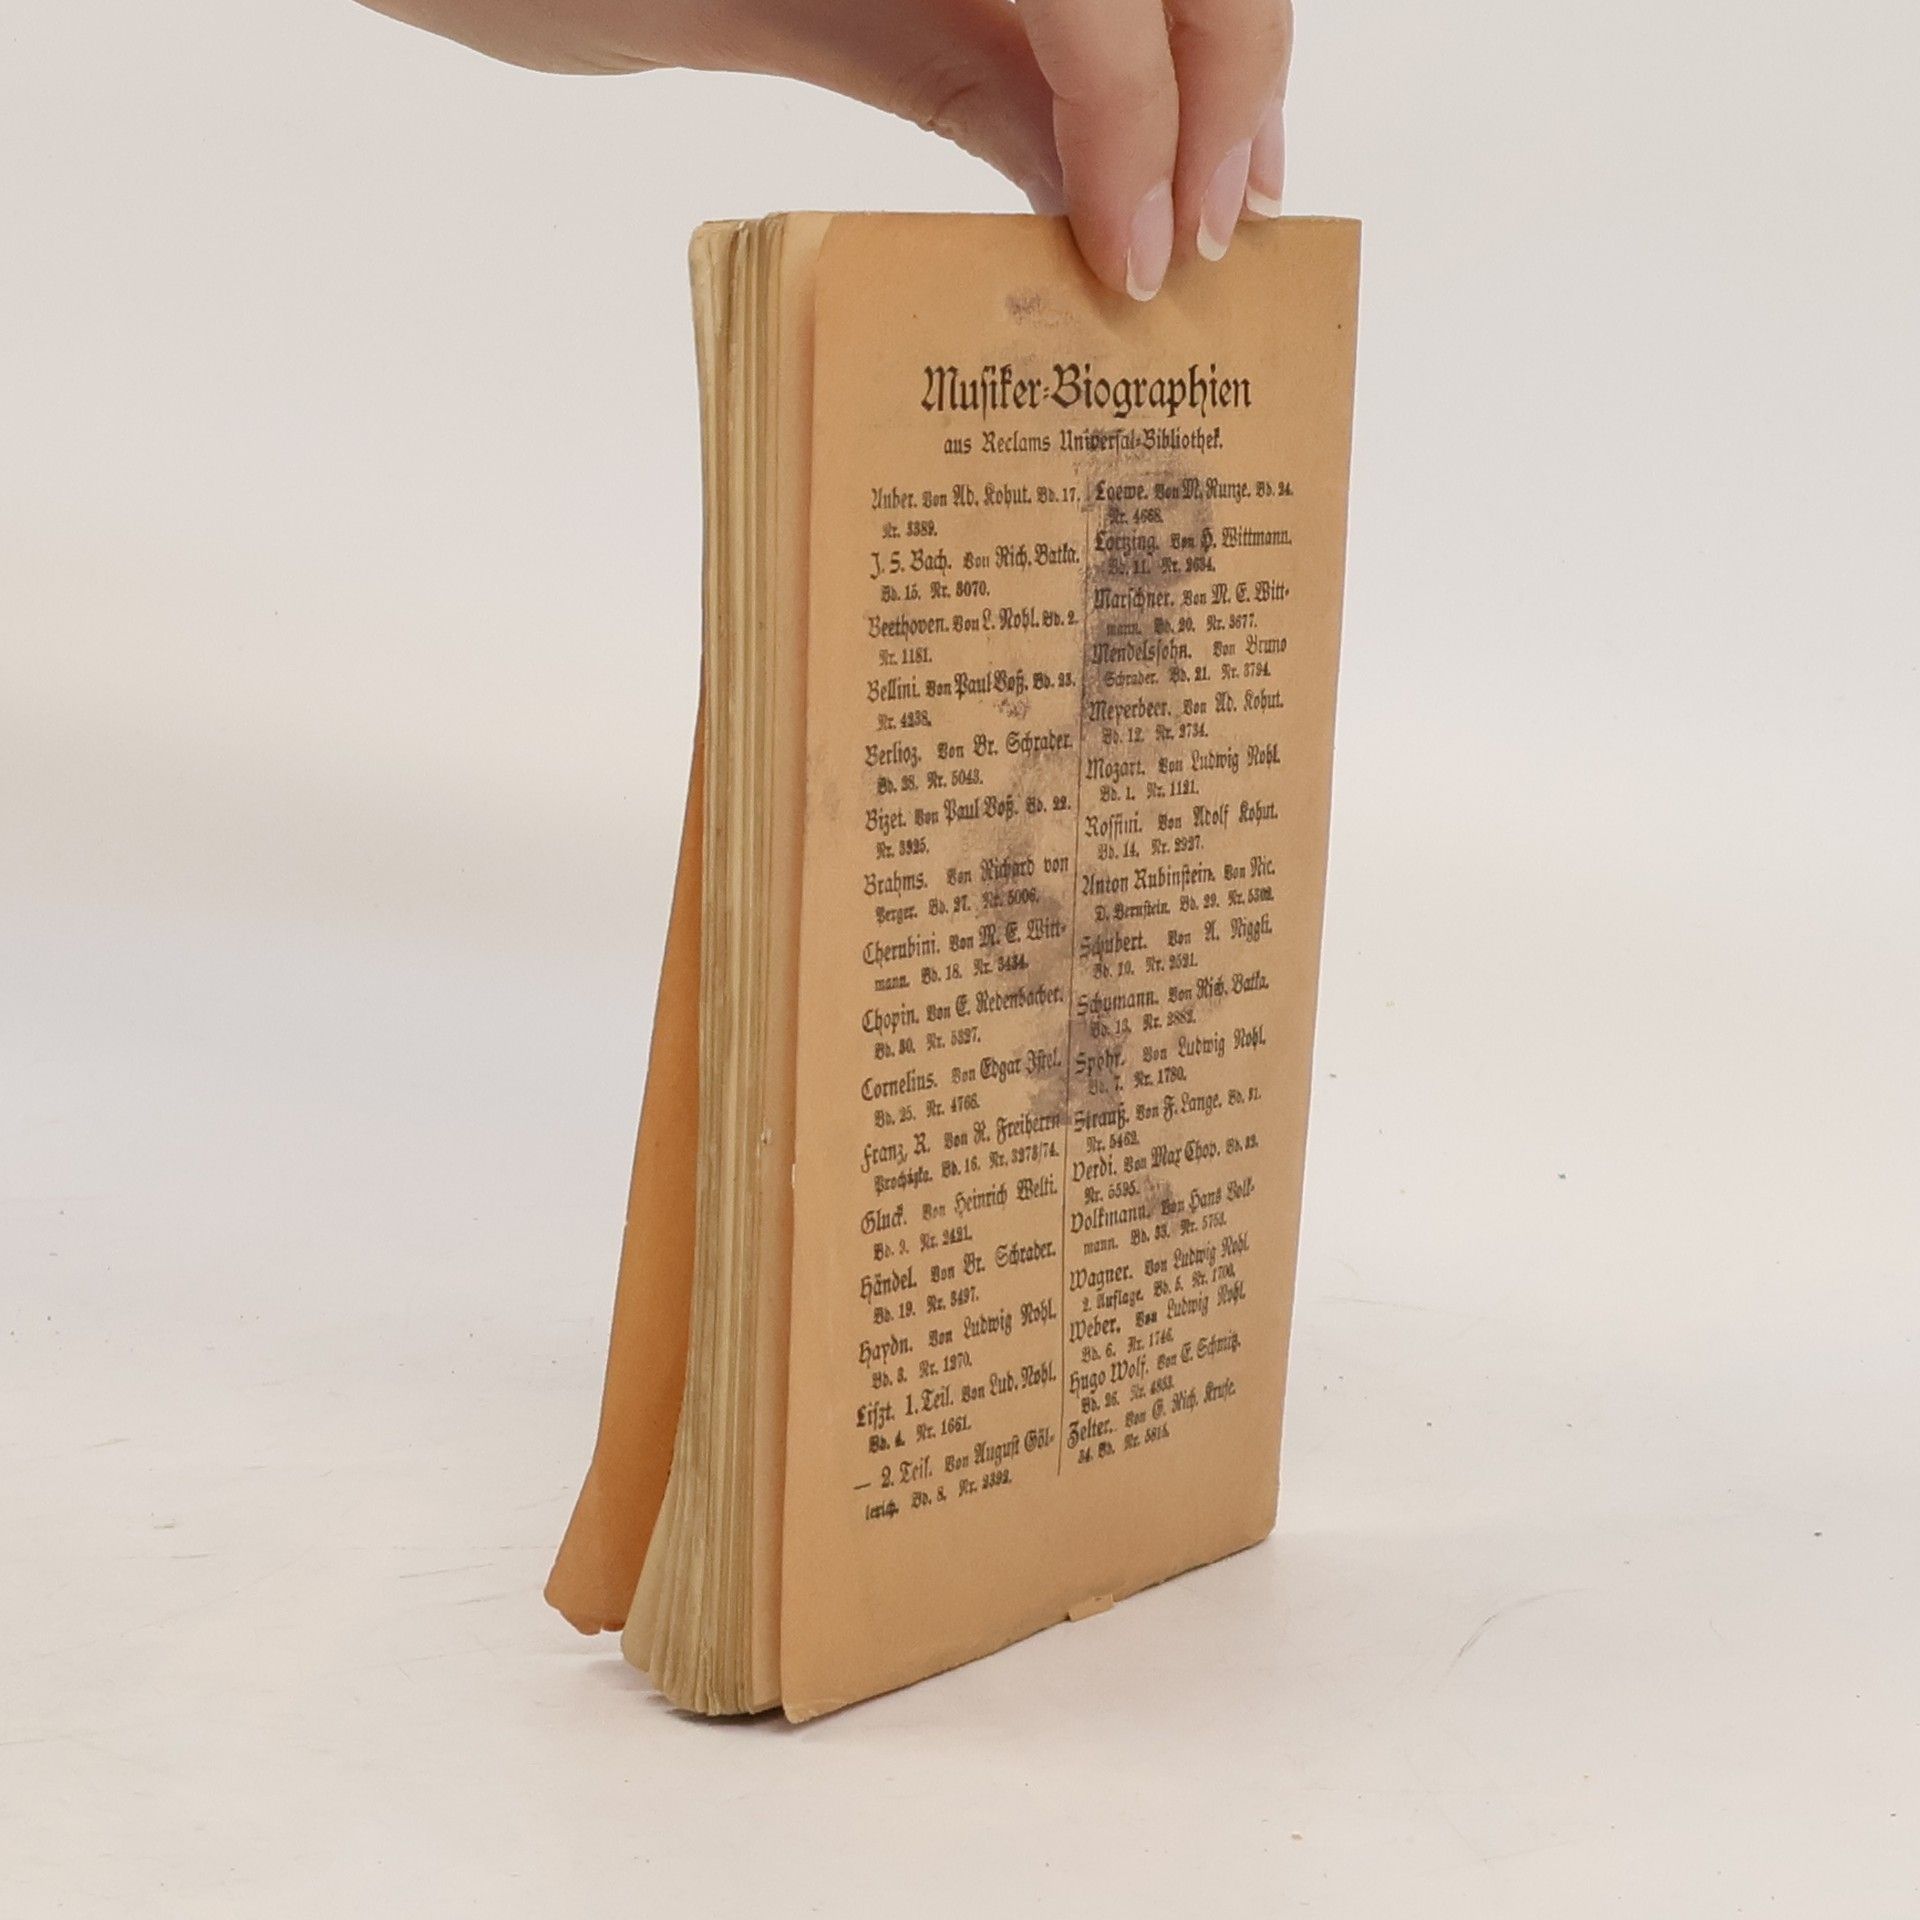 Musiker-Biographien
aus Reclams Universal-Bibliothek.
Auber. Von Ad. Kohut. Bd. 17.
Nr. 3389.
J. S. Bach. Von Rich. Batka.
Bd. 15. Nr. 3070.
Beethoven. Von L. Nohl. Bd. 2.
Nr. 1181.
Bellini. Von Paul Voß. Bd. 23.
Nr. 4238.
Berlioz. Von Br. Schrader.
Bd. 28. Nr. 5043.
Bizet. Von Paul Voß. Bd. 22.
Nr. 3925.
Brahms. Von Richard von
Perger. Bd. 27. Nr. 5006.
Cherubini. Von M. E. Witt-
mann. Bd. 18. Nr. 3434.
Chopin. Von E. Redenbacher.
Bd. 30. Nr. 5327.
Cornelius. Von Edgar Istel.
Bd. 25. Nr. 4766.
Franz, R. Von R. Freiherrn
Procházka. Bd. 16. Nr. 3273/74.
Gluck. Von Heinrich Welti.
Bd. 9. Nr. 2421.
Händel. Von Br. Schrader.
Bd. 19. Nr. 3497.
Haydn. Von Ludwig Nohl.
Bd. 3. Nr. 1270.
Liszt. 1. Teil. Von Lud. Nohl.
Bd. 4. Nr. 1661.
— 2. Teil. Von August Göl-
lerich. Bd. 8. Nr. 2392.
Loewe. Von M. Runze. Bd. 24.
Nr. 4668.
Lortzing. Von H. Wittmann.
Bd. 11. Nr. 2634.
Marschner. Von M. E. Witt-
mann. Bd. 20. Nr. 3677.
Mendelssohn. Von Bruno
Schrader. Bd. 21. Nr. 3794.
Meyerbeer. Von Ad. Kohut.
Bd. 12. Nr. 2734.
Mozart. Von Ludwig Nohl.
Bd. 1. Nr. 1121.
Rossini. Von Adolf Kohut.
Bd. 14. Nr. 2927.
Anton Rubinstein. Von Nic.
D. Bernstein. Bd. 29. Nr. 5302.
Schubert. Von A. Niggli.
Bd. 10. Nr. 2521.
Schumann. Von Rich. Batka.
Bd. 13. Nr. 2882.
Spohr. Von Ludwig Nohl.
Bd. 7. Nr. 1780.
Strauß. Von F. Lange. Bd. 31.
Nr. 5462.
Verdi. Von Max Chop. Bd. 32.
Nr. 5595.
Volkmann. Von Hans Volk-
mann. Bd. 33. Nr. 5753.
Wagner. Von Ludwig Nohl.
2. Auflage. Bd. 5. Nr. 1700.
Weber. Von Ludwig Nohl.
Bd. 6. Nr. 1746.
Hugo Wolf. Von E. Schmitz.
Bd. 26. Nr. 4853.
Zelter. Von G. Rich. Kruse.
34. Bd. Nr. 5815.